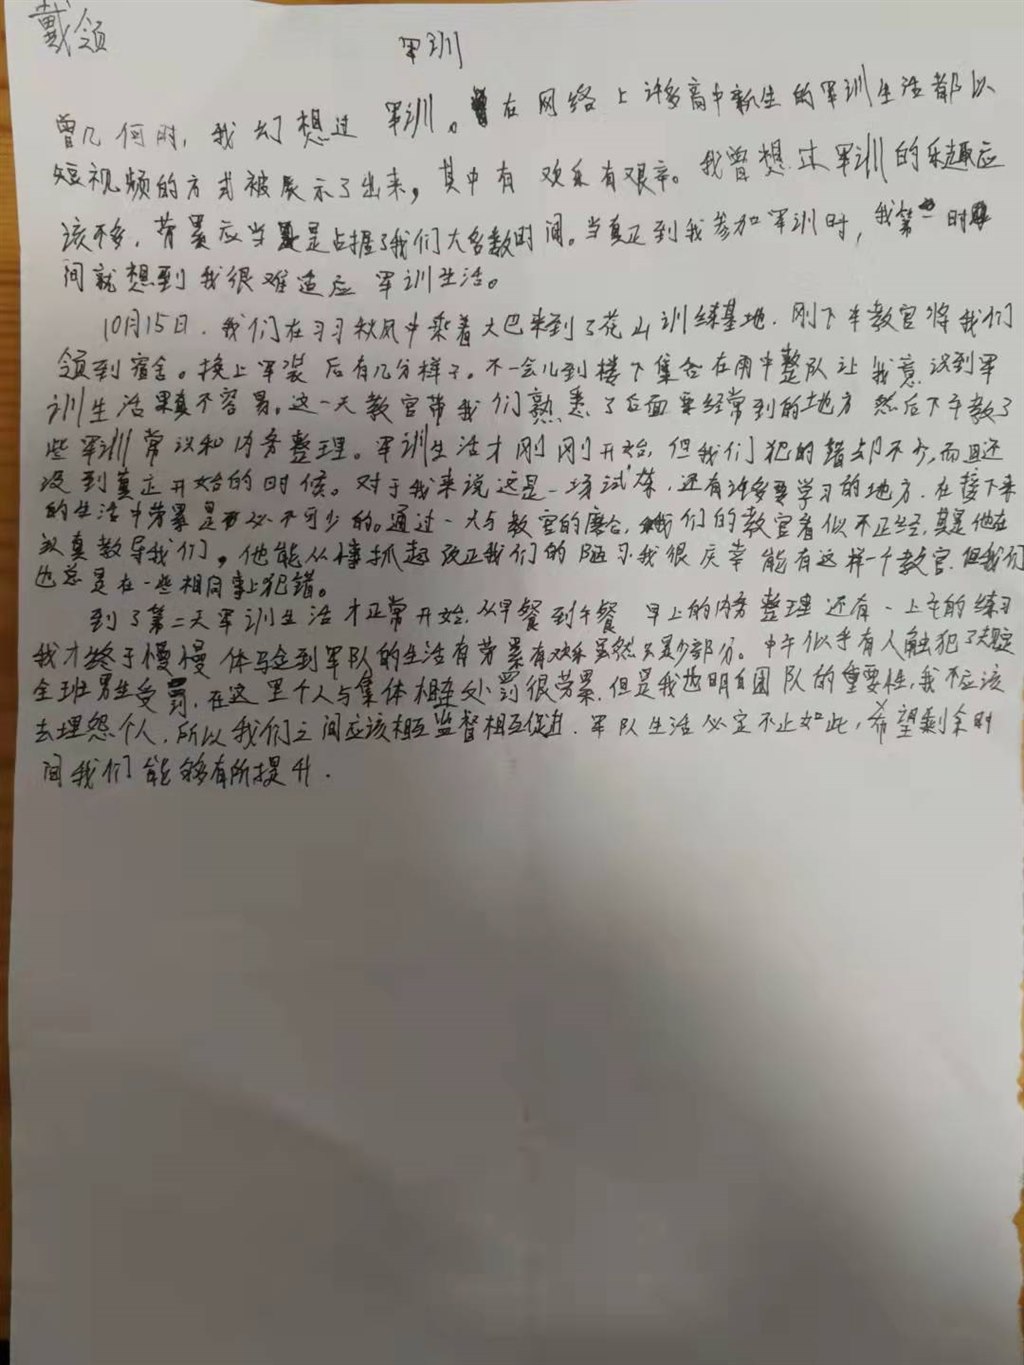 戴领
军训
曾几何时，我幻想过军训。在网络上许多高中新生的军训生活都以
短视频的方式被展示了出来，其中有欢乐有艰辛。我曾想过军训的乐趣应
该不多，劳累应当是占据了我们大多数时间。当真正到我参加军训时，我第一时
间就想到我很难适应军训生活。
10月15日，我们在习习秋风中乘着大巴来到了花山训练基地，刚下车教官将我们
领到宿舍。换上军装后有几分样子。不一会儿到楼下集合在雨中整队让我意识到军
训生活果真不容易。这一天教官带我们熟悉了后面要经常到的地方然后下午教了
些军训常识和内务整理。军训生活才刚刚开始，但我们犯的错却不少，而且还
没到真正开始的时候。对于我来说这是一场试炼，还有许多要学习的地方，在接下来
的生活中劳累是必不可少的。通过一天与教官的磨合，我们的教官看似不正经，其是他在
认真教导我们，他能从事抓起改正我们的陋习，我很庆幸能有这样一个教官，但我们
也总是在一些相同事上犯错。
到了第二天军训生活才正常开始，从早餐到午餐早上的内务整理还有一上午的练习
我才终于慢慢体验到军队的生活有劳累有欢乐虽然只是少部分。中午似乎有人触犯了规定
全班男生受罚，在这里个人与集体相连处罚很劳累，但是我也明白团队的重要性，我不应该
去埋怨个人，所以我们之间应该相互监督相互促进，军队生活必定不止如此，希望剩余时
间我们能够有所提升.